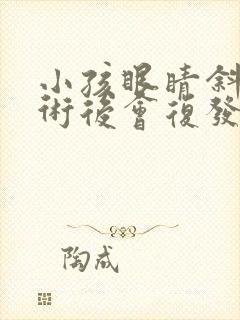 小孩眼睛斜
術後會復發
陶成